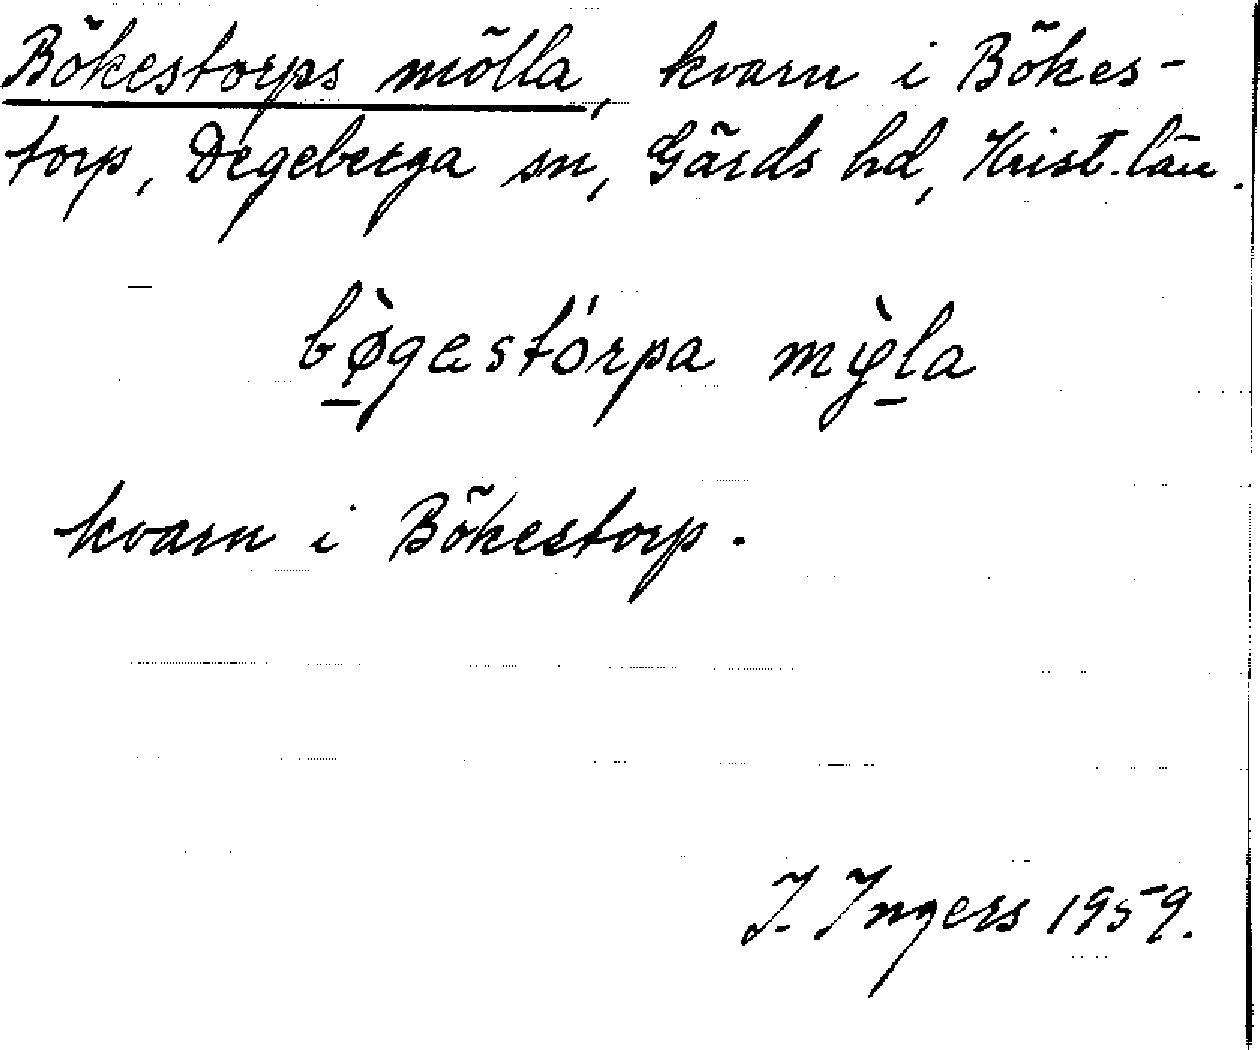 Bökestorps mölla, kvarn i Bökes-
torp, Degeberga sn, Gärds hd, Krist. län.
bø̀gestórpa mỳla
kvarn i Bökestorp.
I. Ingers 1959.